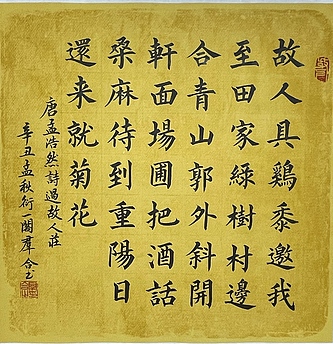 故人具鷄黍邀我
至田家緑樹村邊
合青山郭外斜開
軒面場圃把酒話
桑麻待到重陽日
還来就菊花
唐孟浩然詩過故人莊
辛丑孟秋衍一闌